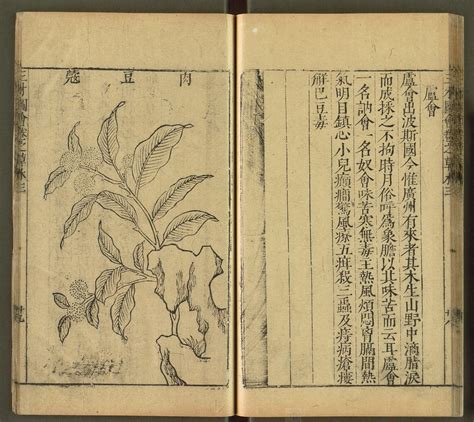 盧會
盧會出波斯國今惟廣州有來者其木生山野中滴脂淚
而成採之不拘時月俗呼爲象膽以其味苦而云耳盧會
一名訥會一名奴會味苦寒無毒主熱風煩悶胷膈間熱
氣明目鎮心小兒癲癇驚風療五疳殺三蟲及痔病瘡瘻
解巴豆毒
肉豆蔻